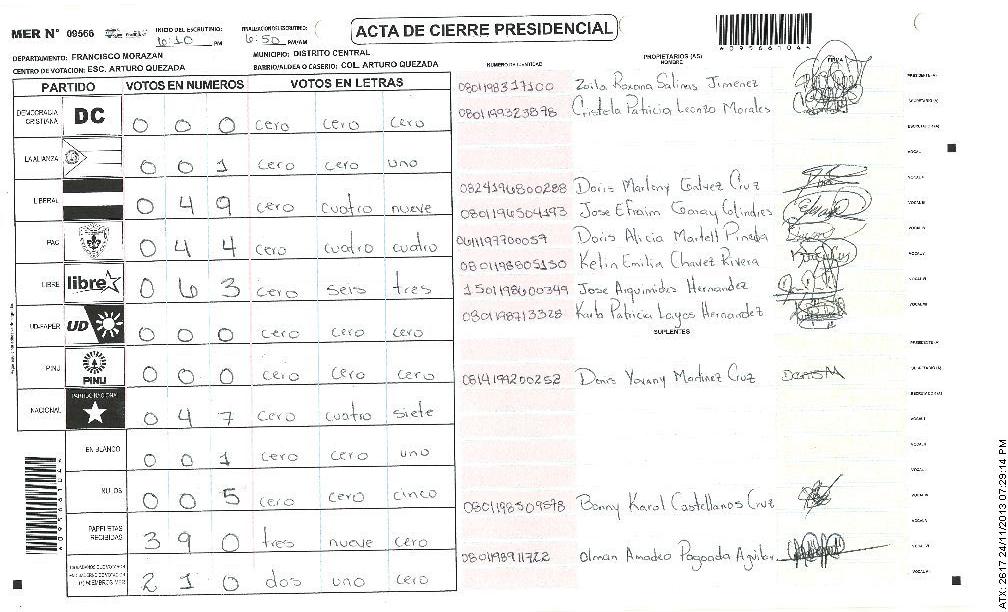 MER N° 09566
INICIO DEL ESCRUTINIO: 6:10 PM
FINALIZACION DEL ESCRUTINIO: 6:50 PM/AM
ACTA DE CIERRE PRESIDENCIAL
DEPARTAMENTO: FRANCISCO MORAZAN
MUNICIPIO: DISTRITO CENTRAL
CENTRO DE VOTACION: ESC. ARTURO QUEZADA
BARRIO/ALDEA O CASERIO: COL. ARTURO QUEZADA
PARTIDO VOTOS EN NUMEROS VOTOS EN LETRAS
DEMOCRACIA CRISTIANA DC 0 0 0 cero cero cero
LA ALIANZA 0 0 1 cero cero uno
LIBERAL 0 4 9 cero cuatro nueve
PAC 0 4 4 cero cuatro cuatro
LIBRE libre 0 6 3 cero seis tres
UD-FAPER UD 0 0 0 cero cero cero
PINU PINU 0 0 0 cero cero cero
NACIONAL PARTIDO NACIONAL 0 4 7 cero cuatro siete
EN BLANCO 0 0 1 cero cero uno
NULOS 0 0 5 cero cero cinco
PAPELETAS RECIBIDAS 3 9 0 tres nueve cero
2 1 0 dos uno cero
NUMERO DE IDENTIDAD
PROPIETARIOS (AS)
NOMBRE
FIRMA
0801198317100 Zoila Roxana Salinas Jimenez
0801199323878 Cristela Patricia Lorenzo Morales
0824196800288 Doris Marleny Galvez Cruz
0801196504193 Jose Efraim Garay Colindres
0611197700057 Doris Alicia Martell Pineda
0801198805130 Kelin Emilia Chavez Rivera
1501198600349 Jose Arquimides Hernandez
0801198713328 Karla Patricia Layos Hernandez
SUPLENTES
0814199200252 Denis Yovany Martinez Cruz
0801198509878 Bonny Karol Castellanos Cruz
0801198911722 Olman Amadeo Pagoada Aguilar
ATX: 2617 24/11/2013 07:29:14 PM